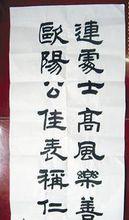 連處士高風樂善
歐陽公佳表稱仁